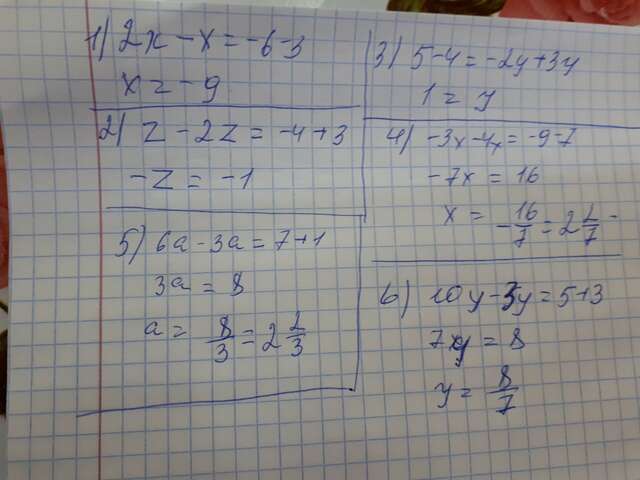 1) 2x - x = -6-3
x = -9
2) z - 2z = -4+3
-z = -1
5) 6a - 3a = 7+1
3a = 8
a = 8/3 = 2 2/3
3) 5-4 = -2y+3y
1 = y
4) -3x-4x = -9-7
-7x = 16
x = -16/7 = 2 2/7
6) 10y-3y = 5+3
7y = 8
y = 8/7